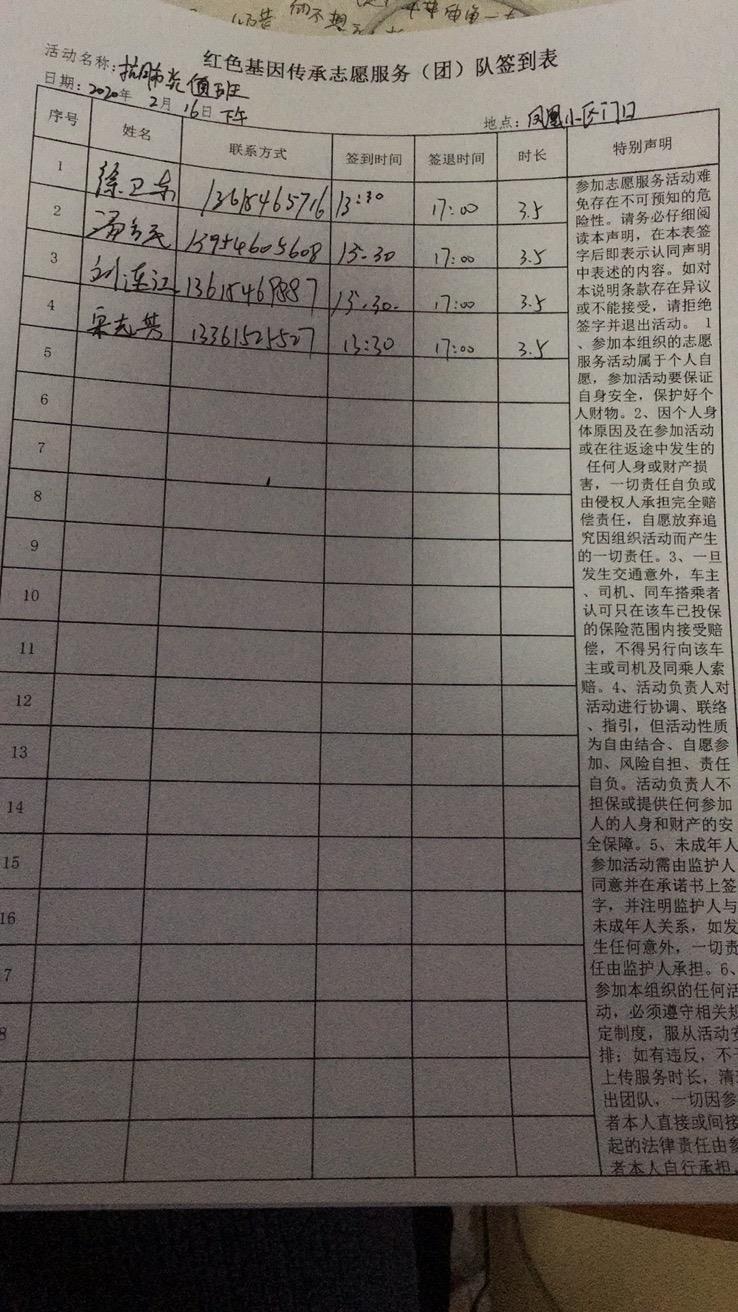 红色基因传承志愿服务（团）队签到表
活动名称：抗肺炎值班
日期：2020年2月16日下午
地点：凤凰小区门口
序号 姓名 联系方式 签到时间 签退时间 时长 特别声明
1 徐卫东 13615465716 13:30 17:00 3.5
2 13954605608 13:30 17:00 3.5
3 刘连江 13615469887 13:30 17:00 3.5
4 宋志其 13361525527 13:30 17:00 3.5
5
6
7
8
9
10
11
12
13
14
15
16
7
8
参加志愿服务活动难
免存在不可预知的危
险性。请务必仔细阅
读本声明，在本表签
字后即表示认同声明
中表述的内容。如对
本说明条款存在异议
或不能接受，请拒绝
签字并退出活动。 1
、参加本组织的志愿
服务活动属于个人自
愿，参加活动要保证
自身安全，保护好个
人财物。2、因个人身
体原因及在参加活动
或在往返途中发生的
任何人身或财产损
害，一切责任自负或
由侵权人承担完全赔
偿责任，自愿放弃追
究因组织活动而产生
的一切责任。3、一旦
发生交通意外，车主
、司机、同车搭乘者
认可只在该车已投保
的保险范围内接受赔
偿，不得另行向该车
主或司机及同乘人索
赔。4、活动负责人对
活动进行协调、联络
、指引，但活动性质
为自由结合、自愿参
加、风险自担、责任
自负。活动负责人不
担保或提供任何参加
人的人身和财产的安
全保障。5、未成年人
参加活动需由监护人
同意并在承诺书上签
字，并注明监护人与
未成年人关系，如发
生任何意外，一切责
任由监护人承担。6、
参加本组织的任何活
动，必须遵守相关规
定制度，服从活动安
排；如有违反，不予
上传服务时长，清
出团队，一切因参
者本人直接或间接
起的法律责任由参
者本人自行承担。